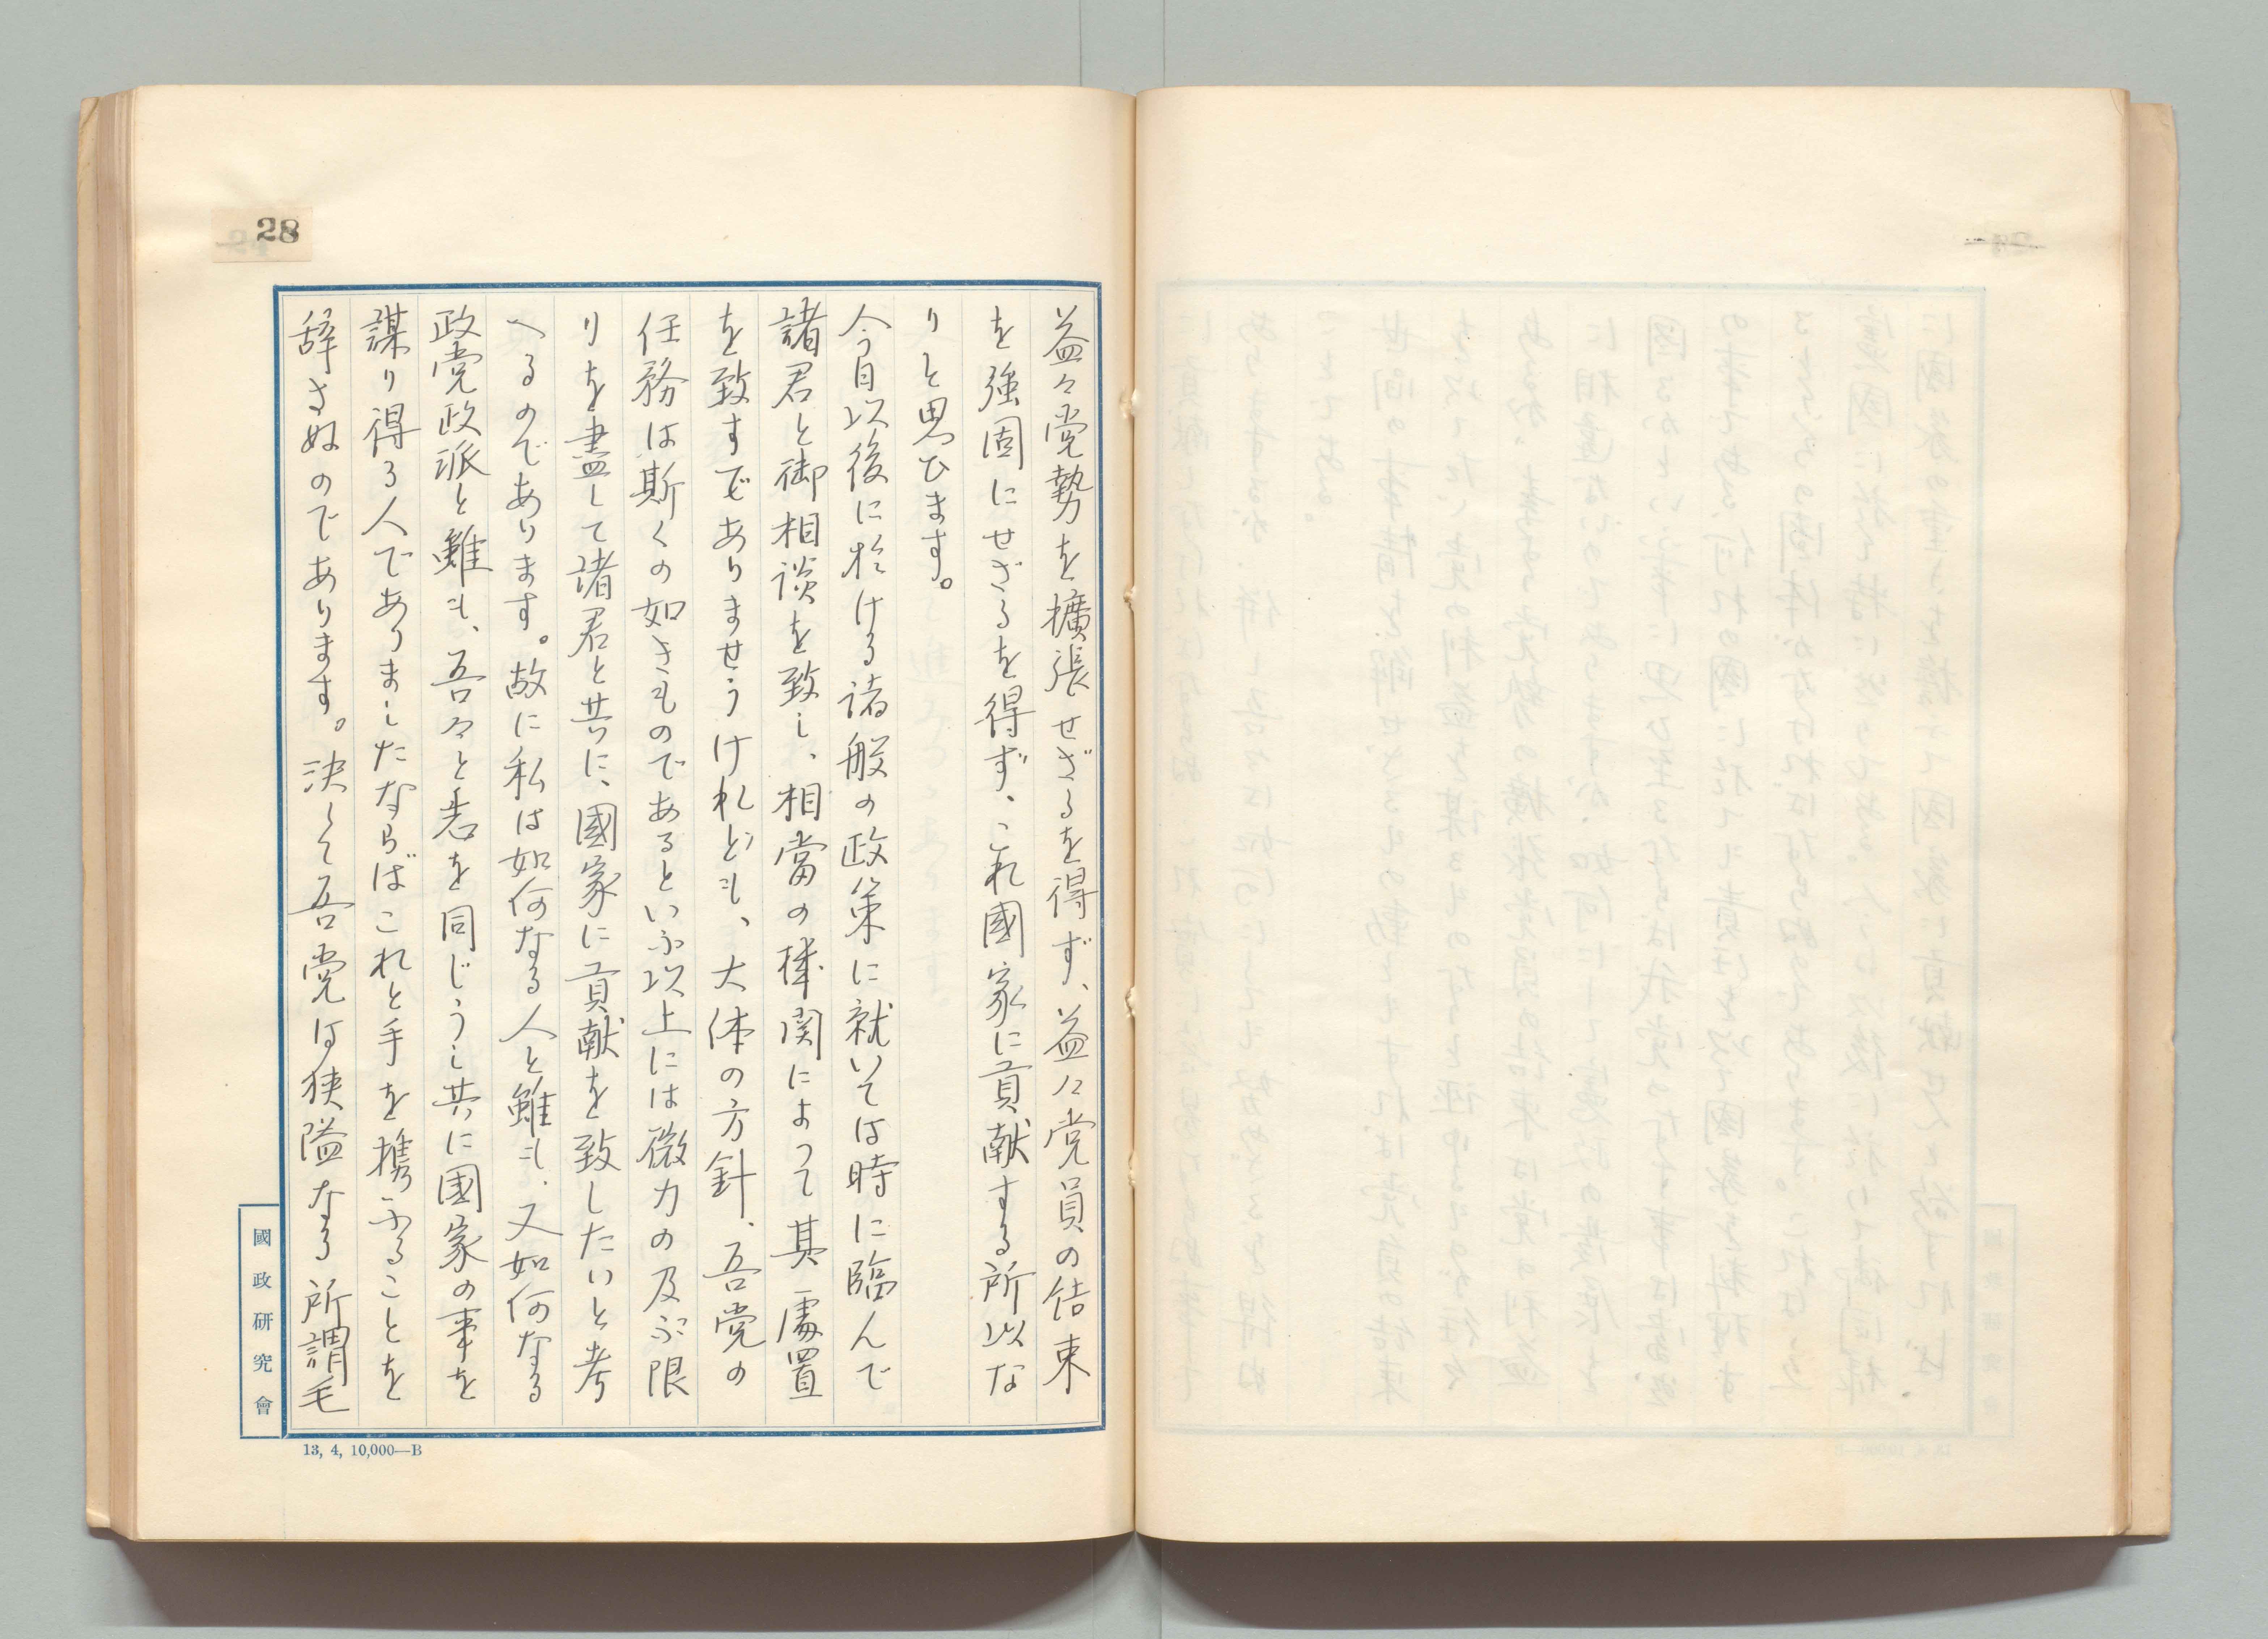 28
益々党勢を擴張せざるを得ず、益々党員の結束
を強固にせざるを得ず、これ國家に貢献する所以な
りと思ひます。
今日以後に於ける諸般の政策に就いては時に臨んで
諸君と御相談を致し、相當の機関によつて其處置
を致すでありませうけれども、大体の方針、吾党の
任務は斯くの如きものであるといふ以上には微力の及ぶ限
りを盡して諸君と共に、國家に貢献を致したいと考
へるのであります。故に私は如何なる人と雖も、又如何なる
政党政派と雖も、吾々と志を同じうし共に國家の事を
謀り得る人でありましたならばこれと手を携ふることを
辞さぬのであります。決して吾党は狭隘なる所謂毛
國政研究會
13, 4, 10,000—B